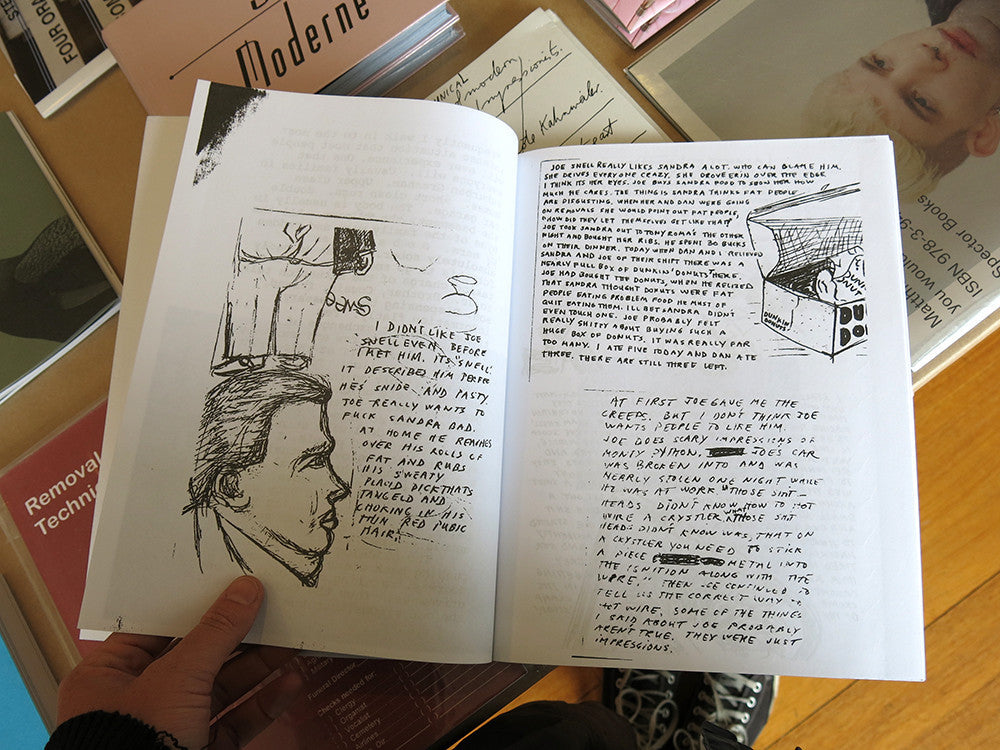 FOUR ORA
Moderne
Removal
Techni
I DIDN'T LIKE JOE
SNELL EVEN BEFORE
I MET HIM. IT'S "SNELL"
IT DESCRIBED HIM
HE'S SNIDE AND PASTY.
JOE REALLY WANTS TO
FUCK SANDRA BAD.
AT HOME HE REACHES
OVER HIS ROLLS OF
FAT AND RUBS
HIS SWEATY
PLACID DICK THATS
TANGELD AND
CHOKING IN HIS
THIN RED PUBIC
HAIR.
JOE SNELL REALLY LIKES SANDRA ALOT. WHO CAN BLAME HIM.
SHE DRIVES EVERYONE CRAZY. SHE DROVE ERIN OVER THE EDGE.
I THINK ITS HER EYES. JOE BUYS SANDRA FOOD TO SHOW HER HOW
MUCH HE CARES. THE THING IS SANDRA THINKS FAT PEOPLE
ARE DISGUSTING. WHEN HER AND DAN WERE GOING
ON REMOVALS SHE WOULD POINT OUT FAT PEOPLE,
"HOW DID THEY LET THEMSELVES GET LIKE THAT?"
JOE TOOK SANDRA OUT TO TONY ROMA'S THE OTHER
NIGHT AND BOUGHT HER RIBS. HE SPENT 30 BUCKS
ON THEIR DINNER. TODAY WHEN DAN AND I RELIEVED
SANDRA AND JOE OF THEIR SHIFT THERE WAS A
NEARLY FULL BOX OF DUNKIN' DONUTS THERE.
JOE HAD BOUGHT THE DONUTS, WHEN HE RELIZED
THAT SANDRA THOUGHT DONUTS WERE FAT
PEOPLE EATING PROBLEM FOOD HE MUST OF
QUIT EATING THEM. ILL BET SANDRA DIDN'T
EVEN TOUCH ONE. JOE PROBABLY FELT
REALLY SHITTY ABOUT BUYING SUCH A
HUGE BOX OF DONUTS. IT WAS REALLY FAR
TOO MANY. I ATE FIVE TODAY AND DAN ATE
THREE. THERE ARE STILL THREE LEFT.
DUNKIN
DONUTS
DU
DO
AT FIRST JOE GAVE ME THE
CREEPS. BUT I DON'T THINK JOE
WANTS PEOPLE TO LIKE HIM.
JOE DOES SCARY IMPRESSIONS OF
MONTY PYTHON. JOES CAR
WAS BROKEN INTO AND WAS
NEARLY STOLEN ONE NIGHT WHILE
HE WAS AT WORK. "THOSE SHIT-
HEADS DIDN'T KNOW HOW TO HOT
WIRE A CRYSTLER. WHAT THOSE SHIT
HEADS DIDN'T KNOW WAS, THAT ON
A CRYSTLER YOU NEED TO STICK
A PIECE METAL INTO
THE IGNITION ALONG WITH THE
WIRE." THEN HE CONTINUED TO
TELL US THE CORRECT WAY TO
HOT WIRE. SOME OF THE THINGS
I SAID ABOUT JOE PROBABLY
AREN'T TRUE. THEY WERE JUST
IMPRESSIONS.
Kahnweiler
Matth
you would
ISBN 978-3-9
Spector Books
Funeral Director
Checks needed for:
Clergy
Organist
Vocalist
Cemetery
Airlines